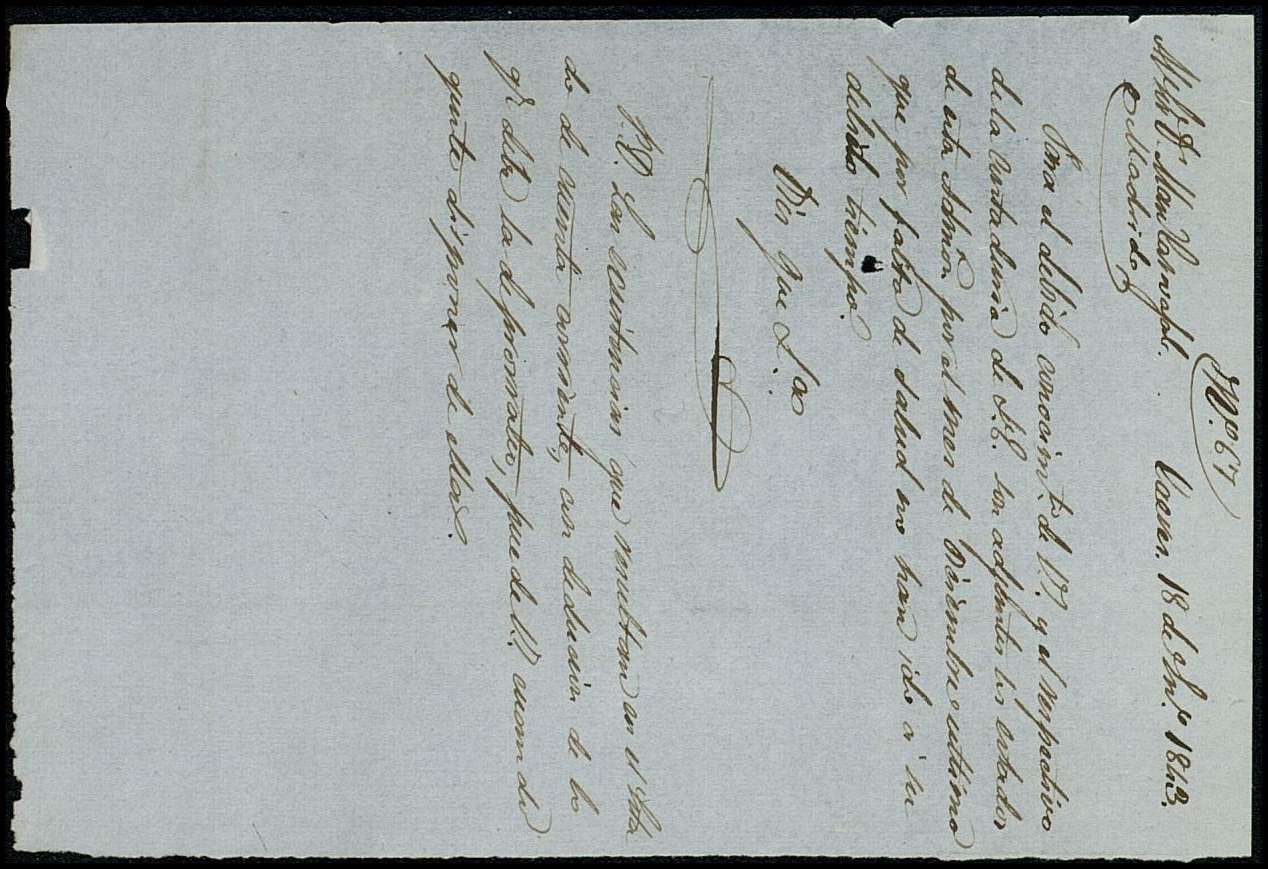 Nº 67
Cacer. 18 de En.º 1843.
S.r D. Man.l Carvajal.
Madrid
Para el debido conocim.to de V. y el respectivo
de la Contaduria de S.E. son adjuntos los estados
de esta Admon. por el mes de Diciembre ultimo
que por falta de salud no han ido a su
debido tiempo.
Dios que &.a
P.D. Las existencias que resultan en el Esta
do de cuenta corriente, con deduccion de lo
q.e data la de pormenor, puede V. cuando
guste disponer de ellas.